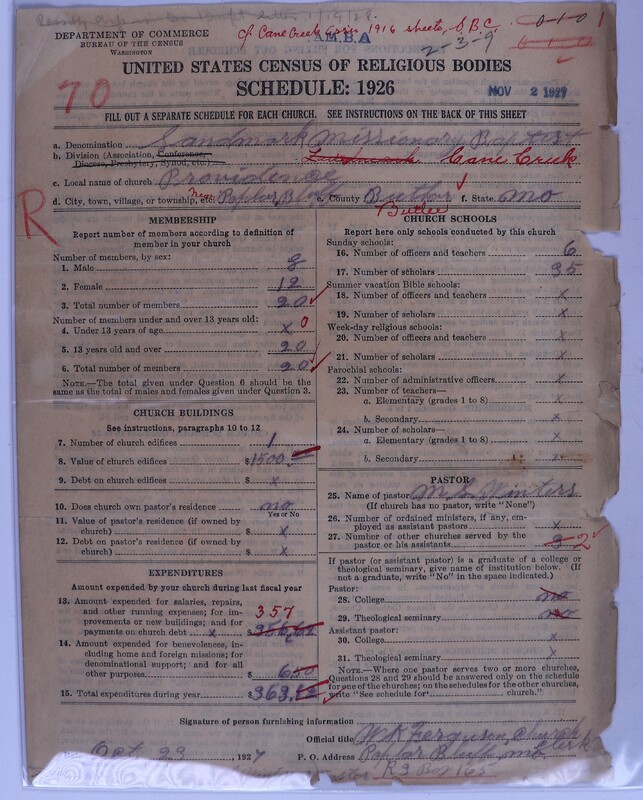 of Cane Creek Assn 1916 sheets, O.B.C.
A.M.B.A
2-3-9
0-1-0 1
DEPARTMENT OF COMMERCE
BUREAU OF THE CENSUS
WASHINGTON
UNITED STATES CENSUS OF RELIGIOUS BODIES
SCHEDULE: 1926
70
NOV 2 1927
FILL OUT A SEPARATE SCHEDULE FOR EACH CHURCH. SEE INSTRUCTIONS ON THE BACK OF THIS SHEET
a. Denomination Landmark Missionary Baptist
b. Division (Association, Conference, Diocese, Presbytery, Synod, etc.) Landmark Cane Creek
c. Local name of church Providence
d. City, town, village, or township, etc. near Poplar Bluff e. County Butler f. State Mo
Butler
R
MEMBERSHIP
Report number of members according to definition of
member in your church
Number of members, by sex:
1. Male 8
2. Female 12
3. Total number of members 20
Number of members under and over 13 years old:
4. Under 13 years of age x 0
5. 13 years old and over 20
6. Total number of members 20
NOTE.—The total given under Question 6 should be
the same as the total of males and females given under Question 3.
CHURCH BUILDINGS
See instructions, paragraphs 10 to 12
7. Number of church edifices 1
8. Value of church edifices $1500
9. Debt on church edifices $ x
10. Does church own pastor's residence? no
Yes or No
11. Value of pastor's residence (if owned by
church) $ x
12. Debt on pastor's residence (if owned by
church) $ x
EXPENDITURES
Amount expended by your church during last fiscal year
13. Amount expended for salaries, repairs,
and other running expenses; for im-
provements or new buildings; and for
payments on church debt x $
357
14. Amount expended for benevolences, in-
cluding home and foreign missions; for
denominational support; and for all
other purposes $ 650
15. Total expenditures during year $ 363.
CHURCH SCHOOLS
Report here only schools conducted by this church
Sunday schools:
16. Number of officers and teachers 6
17. Number of scholars 35
Summer vacation Bible schools:
18. Number of officers and teachers x
19. Number of scholars x
Week-day religious schools:
20. Number of officers and teachers x
21. Number of scholars x
Parochial schools:
22. Number of administrative officers x
23. Number of teachers—
a. Elementary (grades 1 to 8) x
b. Secondary x
24. Number of scholars—
a. Elementary (grades 1 to 8) x
b. Secondary x
PASTOR
25. Name of pastor Winters
(If church has no pastor, write "None")
26. Number of ordained ministers, if any, em-
ployed as assistant pastors x
27. Number of other churches served by the
pastor or his assistants 3 2
If pastor (or assistant pastor) is a graduate of a college or
theological seminary, give name of institution below. (If
not a graduate, write "No" in the space indicated.)
Pastor:
28. College no
29. Theological seminary no
Assistant pastor:
30. College x
31. Theological seminary x
NOTE.—Where one pastor serves two or more churches,
Questions 28 and 29 should be answered only on the schedule
for one of the churches; on the schedules for the other churches,
write "See schedule for church."
Signature of person furnishing information
Official title W.K. Ferguson, Church Clerk
Oct 29, 1927
P. O. Address Poplar Bluff Mo
R3 Box 165